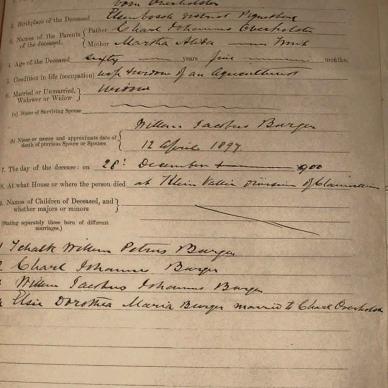 born Overholster
2. Birthplace of the Deceased
3. Names of the Parents of the deceased. Father Charl Johannes Overholster
Mother Martha Alida
4. Age of the Deceased sixty years five months.
5. Condition in life (occupation) wife & widow of an Agriculturist
6. Married or Unmarried, Widower or Widow widow
(a) Name of Surviving Spouse
Willem Jacobus Burger
(b) Name or names and approximate date of death of previous Spouse or Spouses
12 April 1897
7. The day of the decease: on 28th December 900
8. At what House or where the person died at Klein Vallei Division of
9. Names of Children of Deceased, and whether majors or minors
(Stating separately those born of different marriages.)
1 Tchalk Willem Petrus Burger
2 Charl Johannes Burger
3 Willem Jacobus Johannes Burger
4 Elsie Dorothea Maria Burger married to Charl Overholster